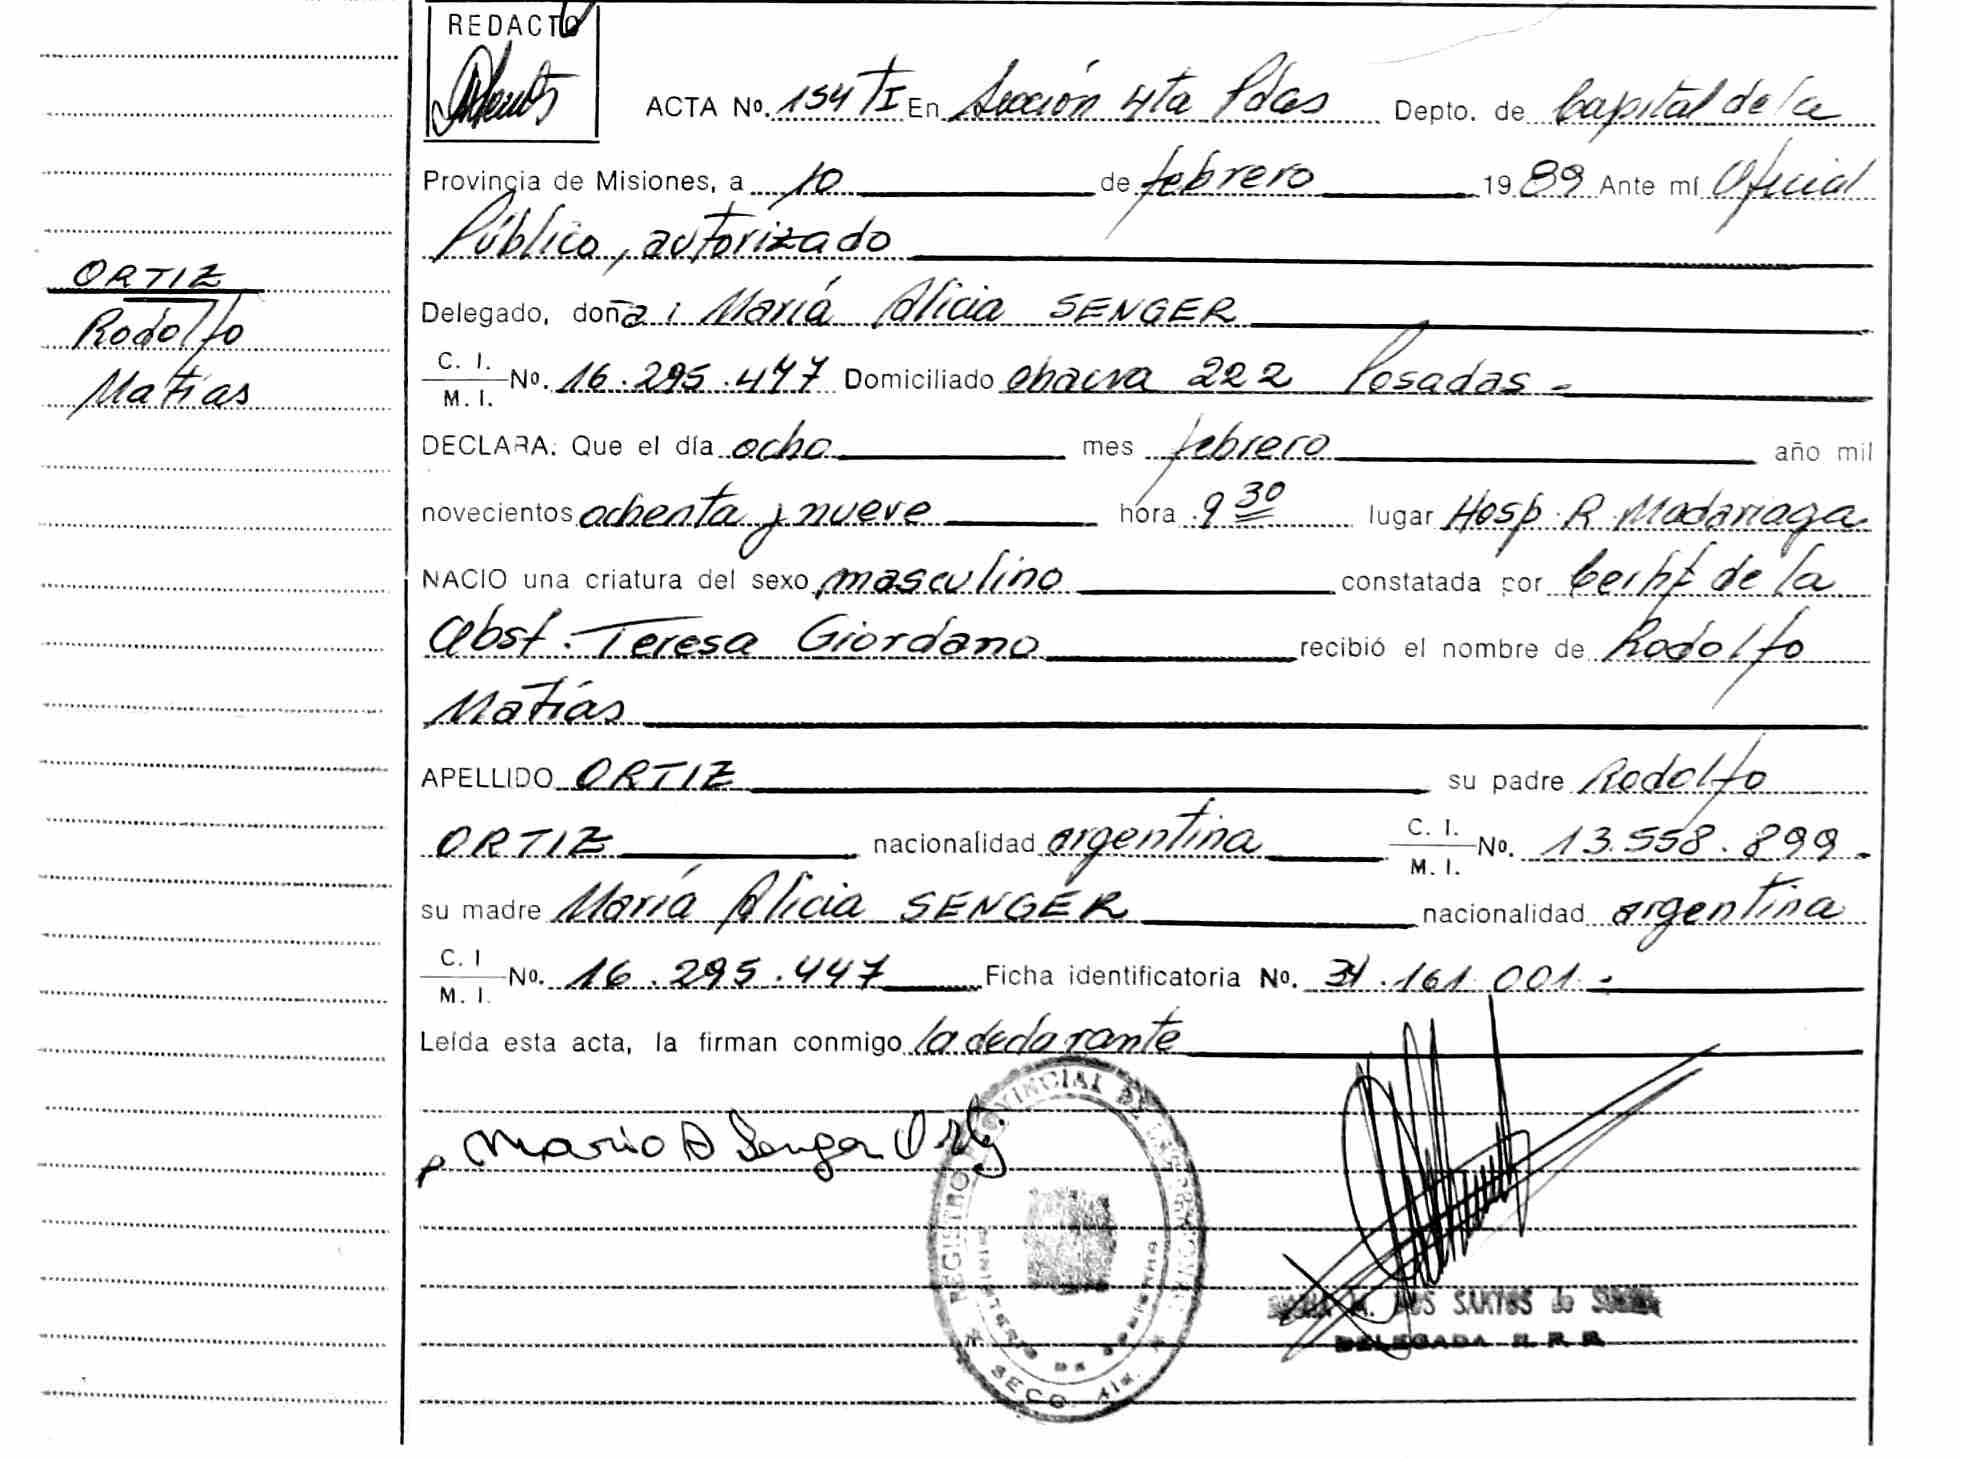 REDACTO
ACTA Nº. 154 TI En Sección 4ta Pdas Depto. de Capital de la
Provincia de Misiones, a 10 de febrero 1989 Ante mí Oficial
Público, autorizado
ORTIZ
Rodolfo
Matías
Delegado, doña: María Alicia SENGER
C. I.
M. I.
Nº. 16.295.447 Domiciliado chacra 222 Posadas.-
DECLARA: Que el día ocho mes febrero año mil
novecientos ochenta y nueve hora 9 30 lugar Hosp. R. Madariaga
NACIO una criatura del sexo masculino constatada por Certif de la
Obst. Teresa Giordano recibió el nombre de Rodolfo
Matías
APELLIDO ORTIZ su padre Rodolfo
ORTIZ nacionalidad argentina C. I.
M. I.
Nº. 13.558.899.-
su madre María Alicia SENGER nacionalidad argentina
C. I
M. I.
Nº. 16.295.447 Ficha identificatoria Nº. 34.161.001.-
Leída esta acta, la firman conmigo la declarante
Maria A Senger Ortiz
REGISTRO PROVINCIAL DE LAS PERSONAS
MINISTERIO DE GOBIERNO
SECC. 4ta.
DOS SANTOS de
DELEGADA R. P. P.